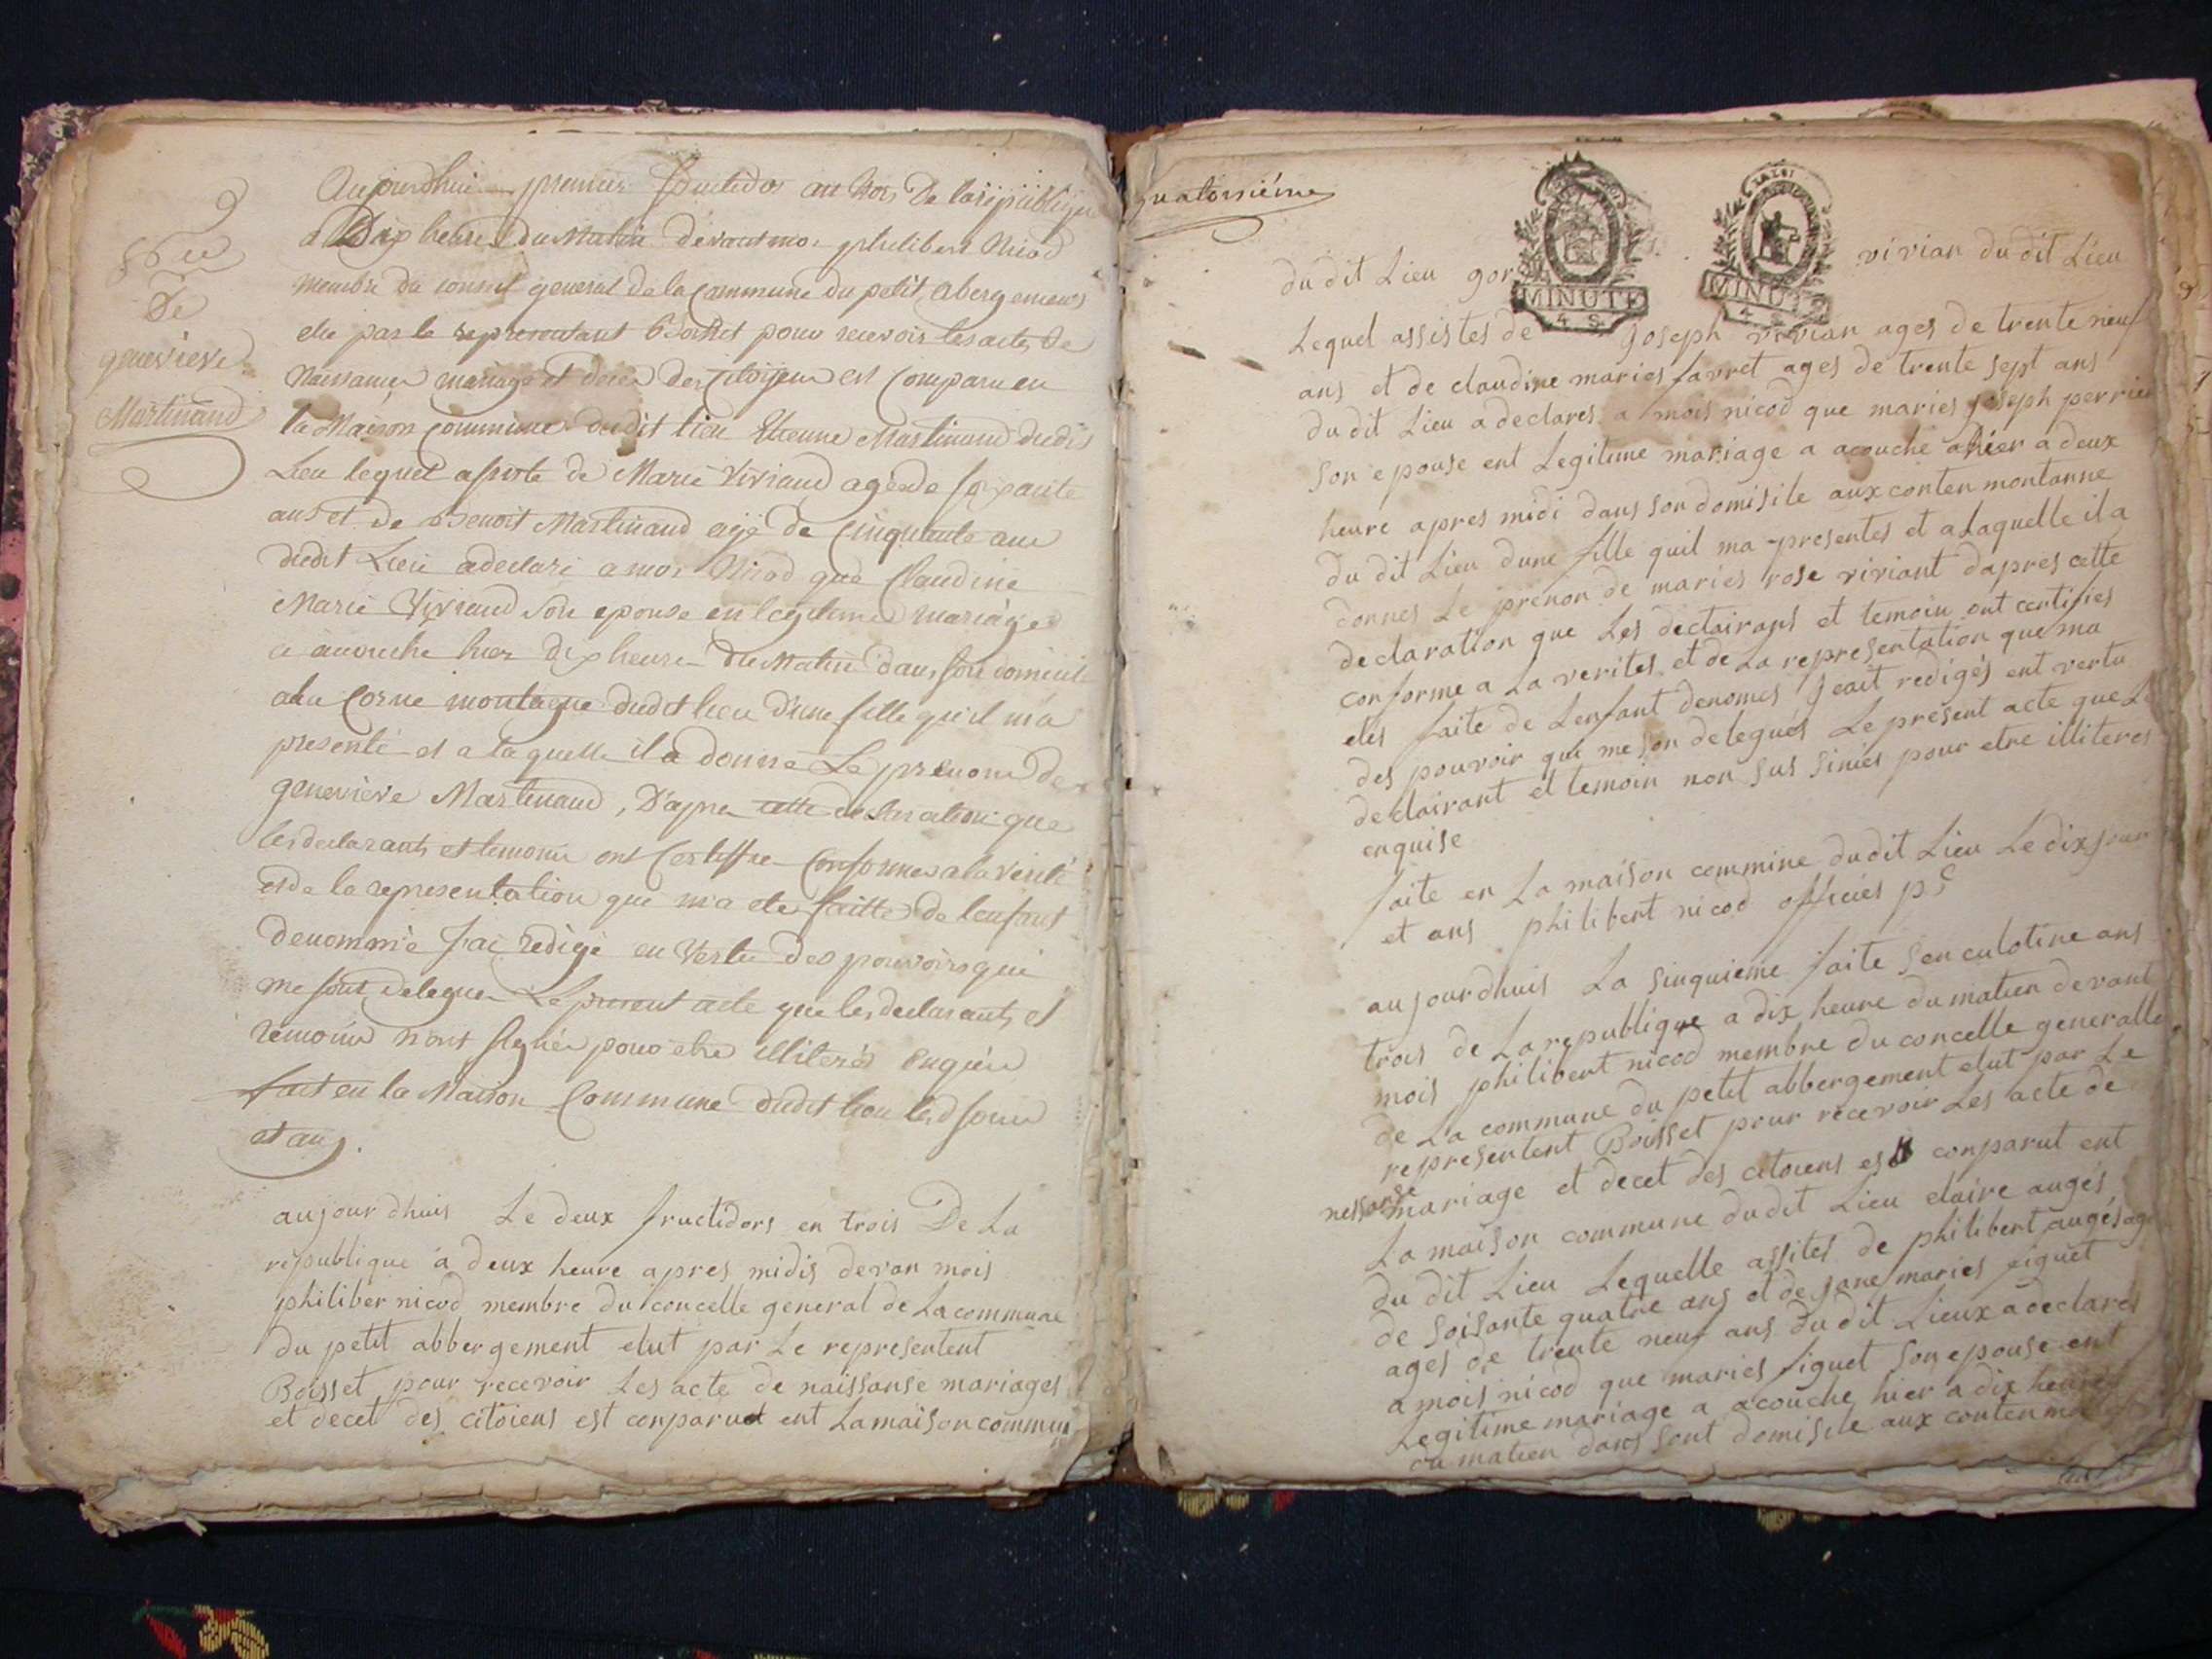 Aujourdhuis premier fructidor an trois De la république
a Dix heures du Matin devant moi philibert Nicod
membre du conseil general de la Commune du petit Abergement
elu par le representant Boisset pour recevoir les actes de
Naissances mariage et deces des Citoyens est Comparu en
la Maison Commune dudit lieu Etienne Martinand dudit
Lieu lequel assiste de Marie Viviand agée de soixante
ans et de Benoit Martinand agé de Cinquante ans
dudit Lieu a declaré a moi Nicod que Claudine
Marie Viviand Son epouse en legitime mariage
a acouché hier dix heures du Matin dans son domicile
a la Corne montagne dudit lieu d'une fille qu'il m'a
presenté et a laquelle il a donné Le prenom de
genevieve Martinand, D'apres cette declaration que
les declarants et temoins ont Certiffié Conformes a la verité
et de la representation qui m'a ete faitte de lenfant
denommé J'ai redigé en Vertu des pouvoirs qui
me sont delegués Le present acte que les declarants et
temoins n'ont signés pour etre illiterés Enquis
fait en la Maison Commune dudit lieu led jour
et an.
aujourdhuis Le deux fructidors en trois De La
republique a deux heure apres midis devan mois
philiber nicod membre du concelle general de La commune
du petit abbergement elut par Le representent
Boisset pour recevoir Les acte de naissanse mariages
et decet des citoiens est conparut ent La maison commun
9
De
genevieve
Martinand
quatorsiéme
du dit Lieu vivian du dit Lieu
MINUTE
4 S.
MINUTE
4 S
Lequel assistes de Joseph vivian ages de trente neuf
ans et de claudine maries favret ages de trente sept ans
du dit Lieu a declares a mois nicod que maries joseph perrier
son epouse ent Legitime mariage a acouche ahier a deux
heure apres midi dans son domisile aux conten montanne
du dit Lieu dune fille quil ma presentes et a Laquelle il a
donnes Le prenon de maries rose viviant dapres cette
declaration que Les declairans et temoin ont certifies
conforme a La verites et de La representation que ma
etes faite de Lenfant denomes Jeait redigés ent vertu
des pouvoir qui me son delegués Le present acte que Le
declairant et temoin non sus sinies pour etre illiteres
enquise
faite en La maison commine du dit Lieu Le dix jour
et ans philibert nicod officiés p.
aujourdhuis La sinquieme faite senculotine ans
trois de La republique a dix heure du matien devant
mois philibert nicod membre du concelle generalle
de La commune du petit abbergement elut par Le
representent Boisset pour recevoir Les acte de
nessanse mariage et decet des citoiens est conparut ent
La maison commune du dit Lieu claire augés
du dit Lieu Lequelle assites de philibert augés age
de soisante quatre ans et de jane maries figuet
ages de trente neuf ans du dit Lieux a declares
a mois nicod que maries figuet son epouse ent
Legitime mariage a acouche hier a dix heure
du matien dans sont domisile aux conten